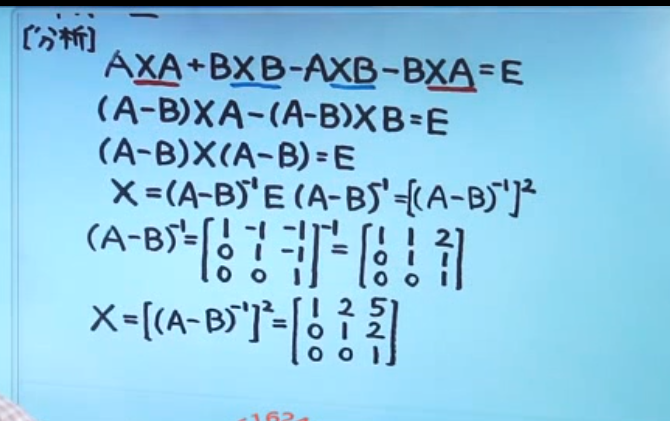 [分析]
AXA+BXB-AXB-BXA=E
(A-B)XA-(A-B)XB=E
(A-B)X(A-B)=E
X=(A-B)⁻¹E(A-B)⁻¹=[(A-B)⁻¹]²
(A-B)⁻¹=[1 -1 -1; 0 1 -1; 0 0 1]⁻¹=[1 1 2; 0 1 1; 0 0 1]
X=[(A-B)⁻¹]²=[1 2 5; 0 1 2; 0 0 1]
162